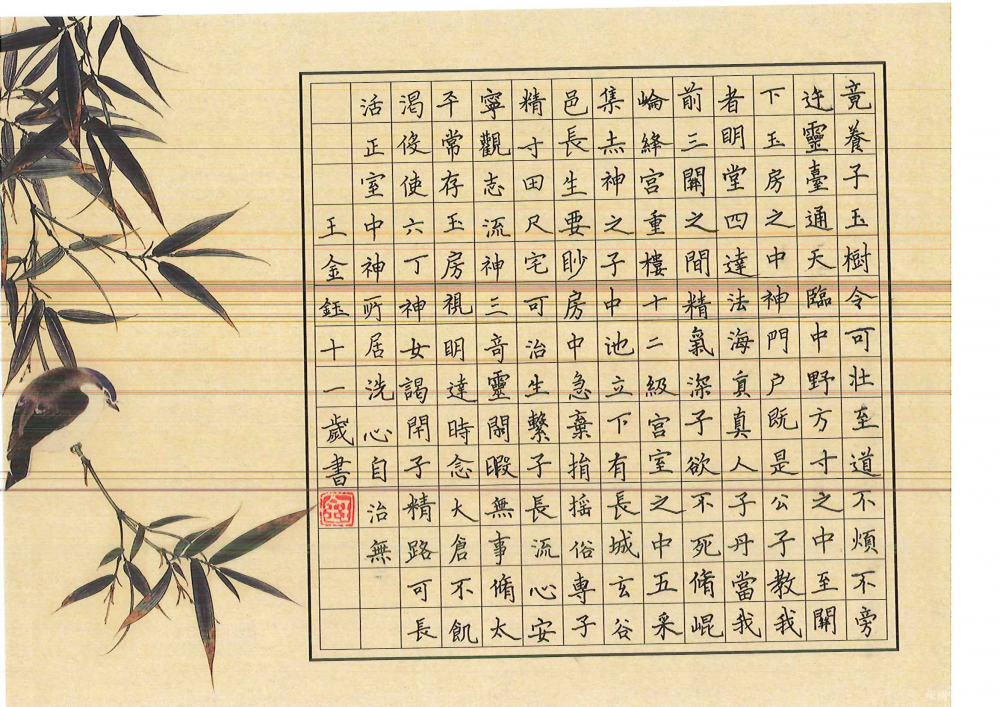 竟養子玉樹令可壯至道不煩不旁
迕靈臺通天臨中野方寸之中至關
下玉房之中神門户既是公子教我
者明堂四達法海員真人子丹當我
前三關之間精氣深子欲不死脩崐
崘絳宮重樓十二級宮室之中五采
集赤神之子中池立下有長城玄谷
邑長生要眇房中急棄捐摇俗專子
精寸田尺宅可治生繫子長流心安
寧觀志流神三奇靈閑暇無事脩太
平常存玉房視明達時念大倉不飢
渴役使六丁神女謁閉子精路可長
活正室中神所居洗心自治無
王金鈺十一歲書